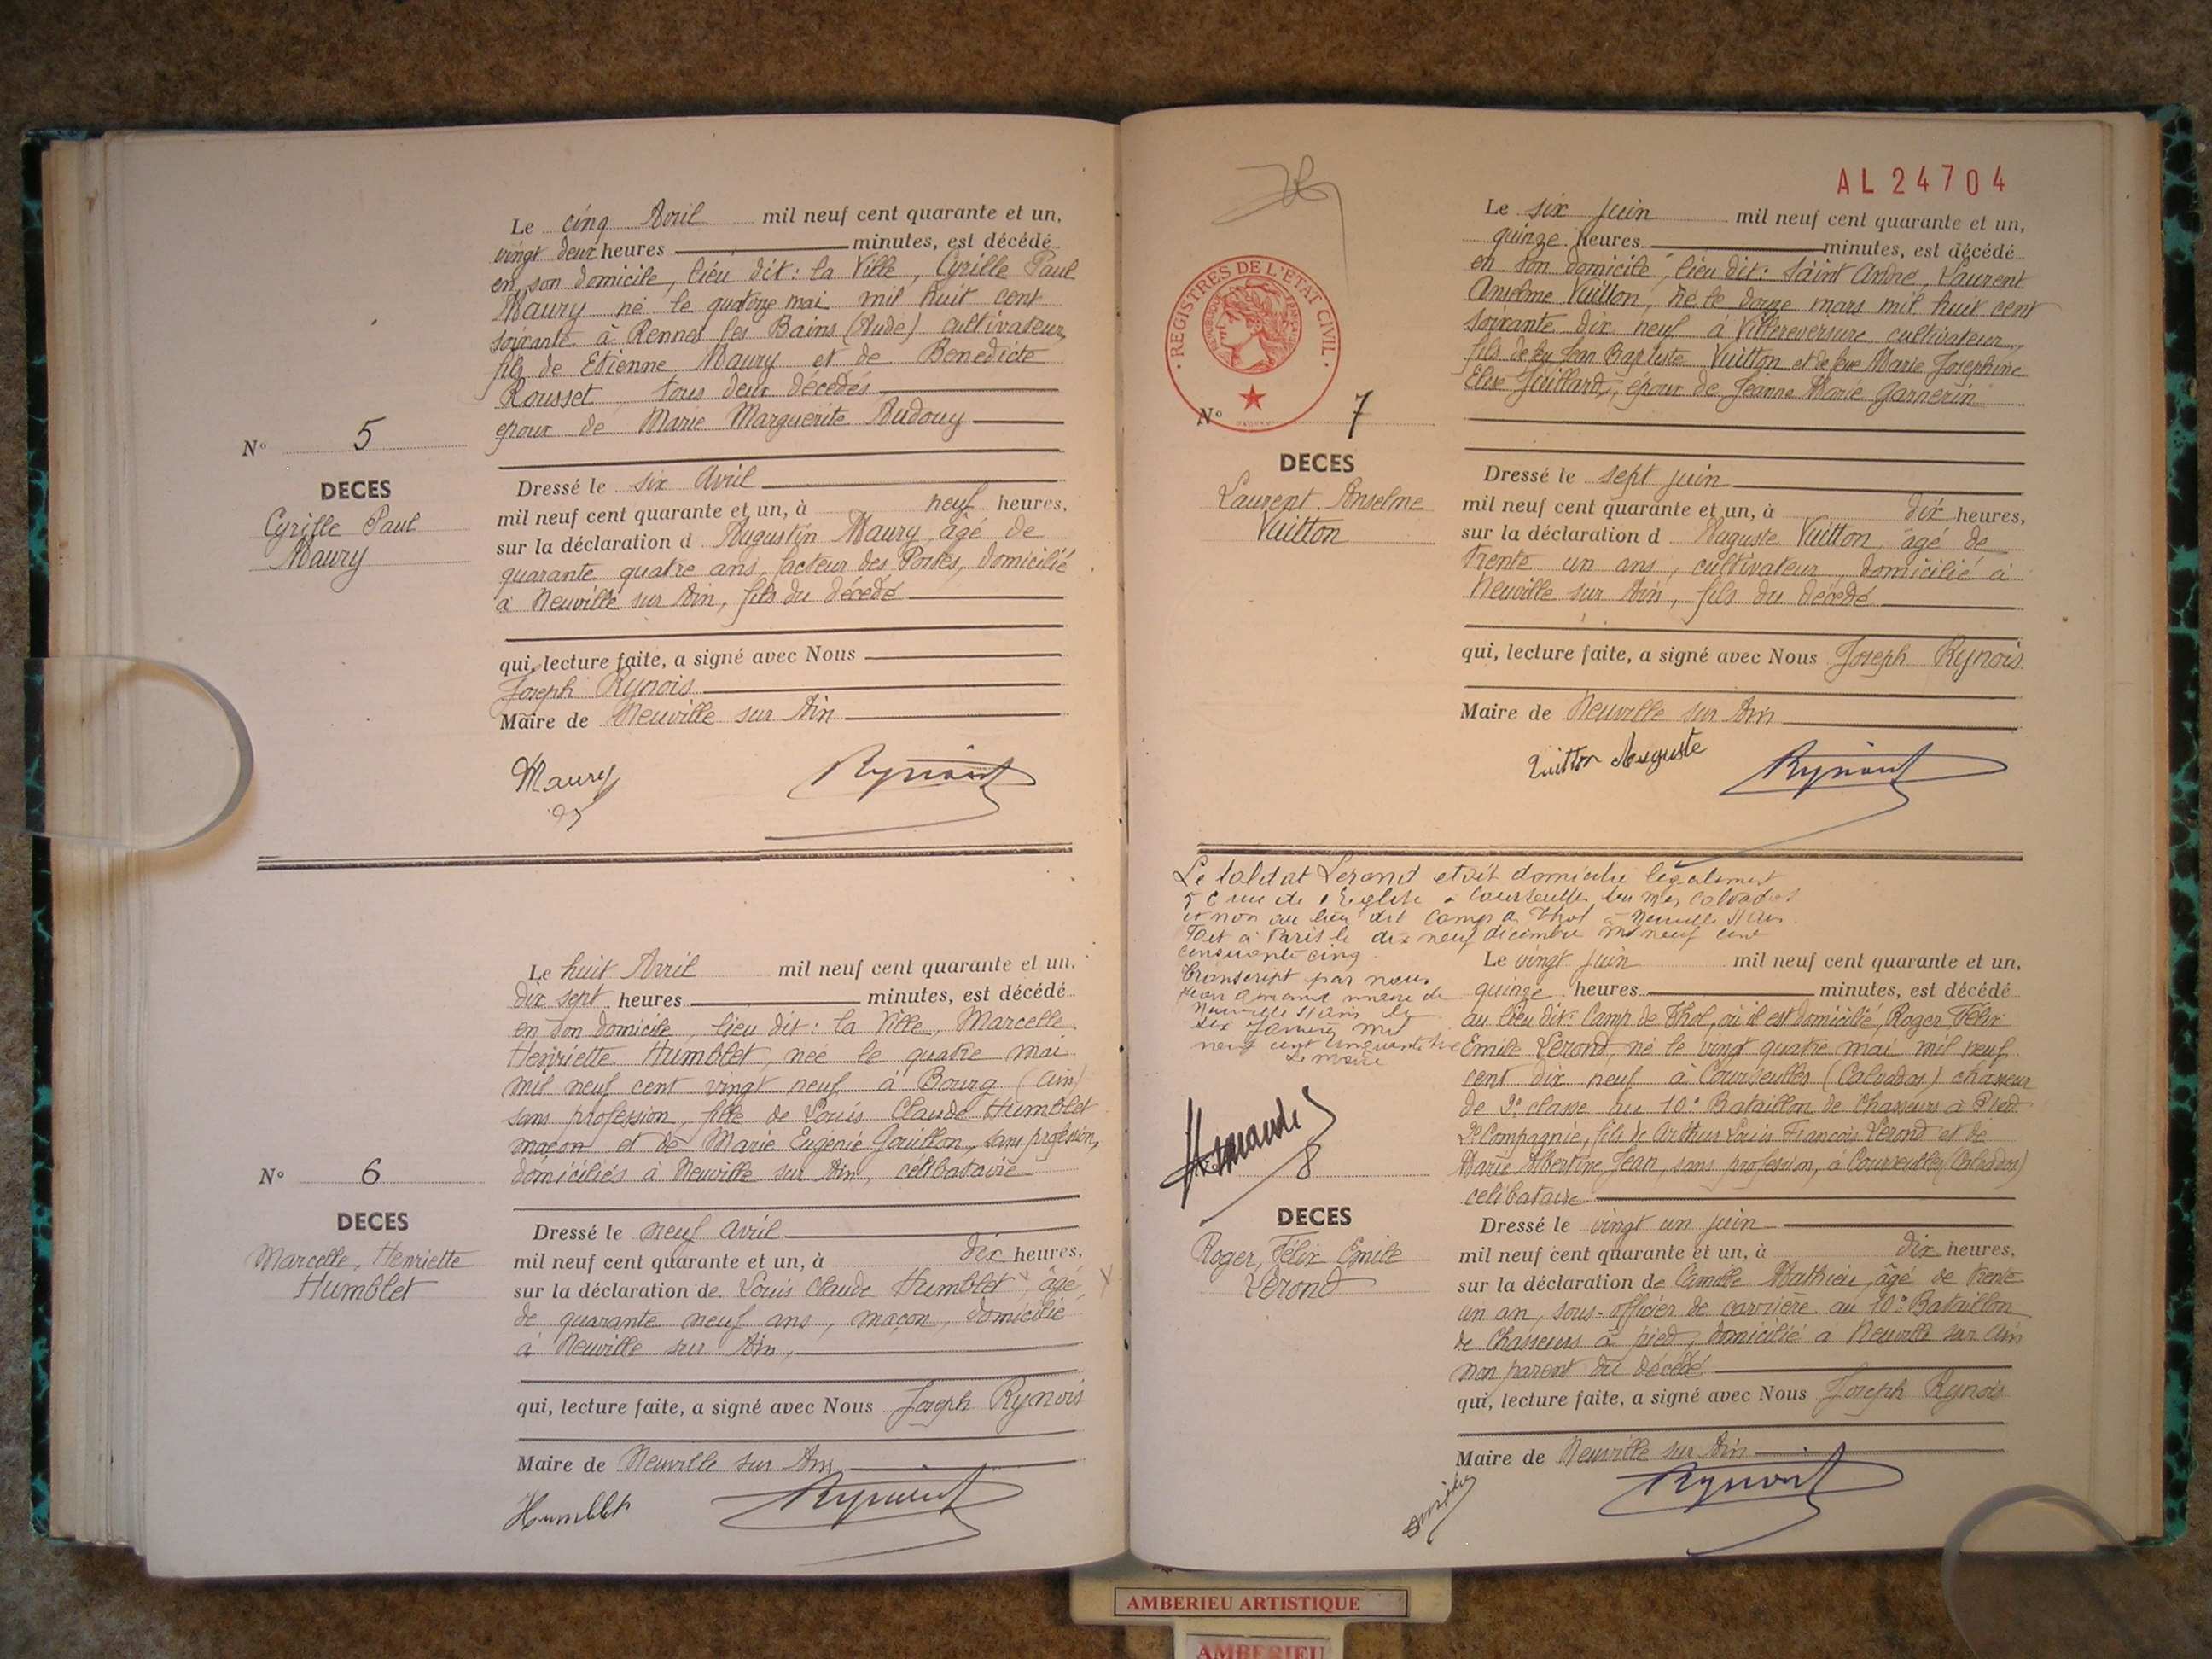 Le cinq Avril mil neuf cent quarante et un,
vingt deux heures minutes, est décédé
en son domicile, lieu dit: la Ville, Cyrille Paul
Maury né le quatorze mai mil huit cent
soixante à Rennes les Bains (Aude) cultivateur,
fils de Etienne Maury et de Benedicte
Rousset, tous deux décédés
époux de Marie Marguerite Audouy
N° 5
DECES
Cyrille Paul
Maury
Dressé le six Avril
mil neuf cent quarante et un, à neuf heures,
sur la déclaration d Augustin Maury, âgé de
quarante quatre ans, facteur des Postes, domicilié
à Neuville sur Ain, fils du décédé
qui, lecture faite, a signé avec Nous
Joseph Rynois
Maire de Neuville sur Ain
Maury
Rynois
Le huit Avril mil neuf cent quarante et un,
dix sept heures minutes, est décédé
en son domicile, lieu dit: la Ville, Marcelle
Henriette Humblet, née le quatre mai
mil neuf cent vingt neuf à Bourg (Ain)
sans profession, fille de Louis Claude Humblet
maçon et de Marie Eugénie Gouillon, sans profession,
domiciliés à Neuville sur Ain, célibataire
N° 6
DECES
Marcelle, Henriette
Humblet
Dressé le neuf avril
mil neuf cent quarante et un, à dix heures,
sur la déclaration de Louis Claude Humblet, âgé
de quarante neuf ans, maçon, domicilié
à Neuville sur Ain,
qui, lecture faite, a signé avec Nous Joseph Rynois
Maire de Neuville sur Ain
Humblet
Rynois
AL 24704
REGISTRES DE L'ETAT CIVIL
Le six juin mil neuf cent quarante et un,
quinze heures minutes, est décédé
en son domicile, lieu dit: Saint André, Laurent
Anselme Vuitton, né le douze mars mil huit cent
soixante dix neuf à Villereversure cultivateur,
fils de feu Jean Baptiste Vuitton et de feue Marie Josephine
Elise Juillard, époux de Jeanne Marie Garnerin
N° 7
DECES
Laurent Anselme
Vuitton
Dressé le sept juin
mil neuf cent quarante et un, à dix heures,
sur la déclaration d Auguste Vuitton, âgé de
trente un ans, cultivateur, domicilié à
Neuville sur Ain, fils du décédé
qui, lecture faite, a signé avec Nous Joseph Rynois
Maire de Neuville sur Ain
Vuitton Auguste
Rynois
Le soldat Lerond etait domicilié légalement
rue de l'Eglise à Courseulles sur mer Calvados
et non au lieu dit Camp de Thol à Neuville s/ Ain
Fait à Paris le dix neuf décembre mil neuf cent
cinquante cinq
Transcript par nous
maire de
Neuville s/ Ain le
six Janvier mil
neuf cent cinquante six
Le maire
Le vingt juin mil neuf cent quarante et un,
quinze heures minutes, est décédé
au lieu dit: Camp de Thol, où il est domicilié, Roger, Félix
Emile Lerond, né le vingt quatre mai mil neuf
cent dix neuf à Courseulles (Calvados) chasseur
de 2e classe au 10e Bataillon de Chasseurs à Pied
2e Compagnie, fils de Arthur Louis François Lerond et de
Marie Albertine Jean, sans profession, à Courseulles (Calvados)
célibataire
8
DECES
Roger, Félix Emile
Lerond
Dressé le vingt un juin
mil neuf cent quarante et un, à dix heures,
sur la déclaration de Camille Mathieu, âgé de trente
un an, sous-officier de carrière au 10e Bataillon
de Chasseurs à pied, domicilié à Neuville sur Ain
non parent du décédé
qui, lecture faite, a signé avec Nous Joseph Rynois
Maire de Neuville sur Ain
Rynois
AMBERIEU ARTISTIQUE
AMBERIEU